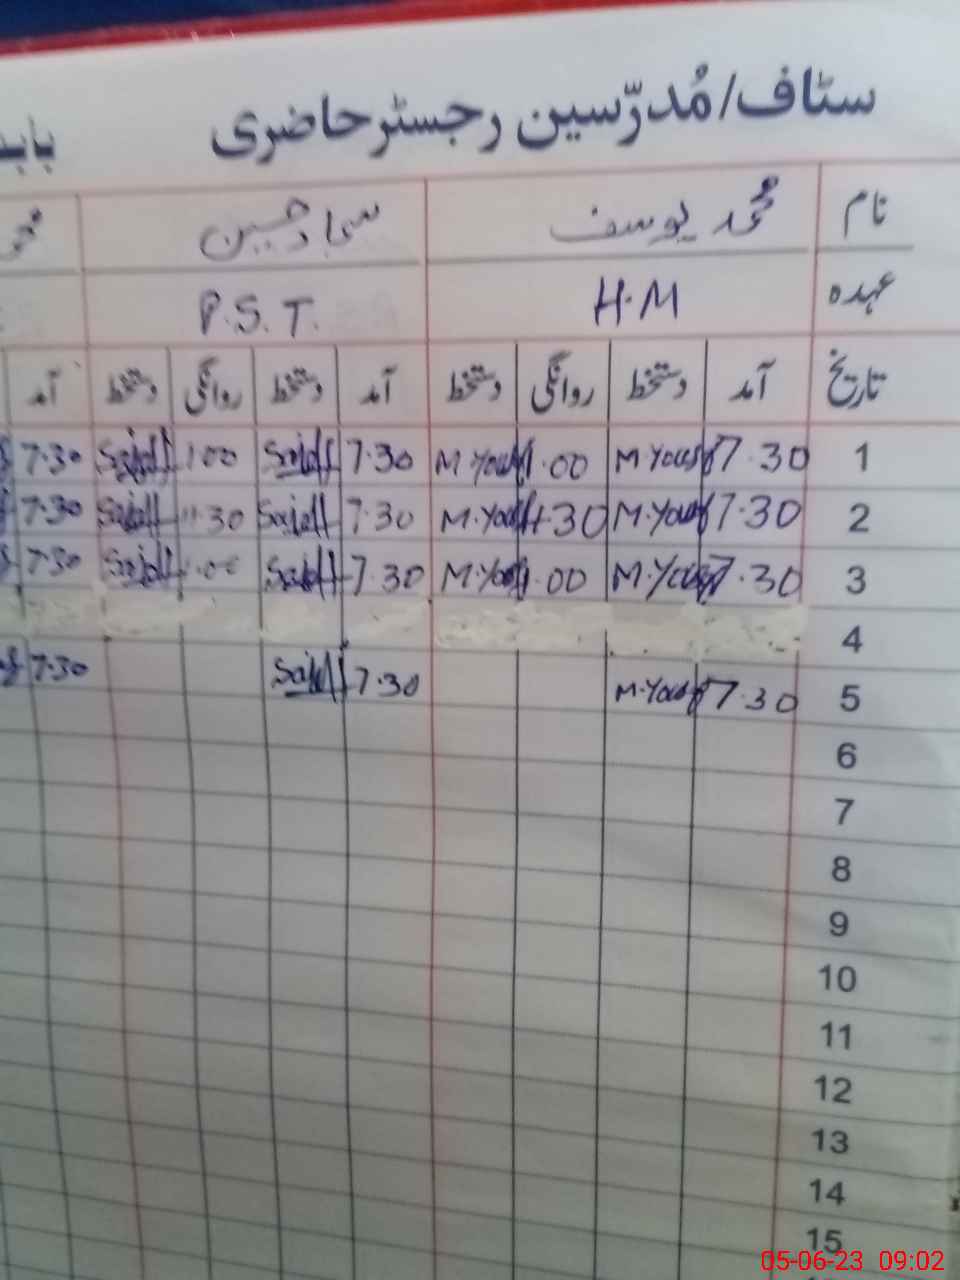 سٹاف/مُدرّسین رجسٹر حاضری
نام محمد یوسف سجاد حسین
عہدہ H.M P.S.T.
تاریخ آمد دستخط روانگی دستخط آمد دستخط روانگی دستخط آمد
1 7.30 M.Yousf 1.00 M.Yousf 7.30 Sajaff 1.00 Sajaff 7.30
2 7.30 M.Yousf 11.30 M.Yousf 7.30 Sajaff 11.30 Sajaff 7.30
3 7.30 M.Yousf 1.00 M.Yousf 7.30 Sajaff 1.00 Sajaff 7.30
4
5 7.30 M.Yousf 7.30 Sajaff 7.30
6
7
8
9
10
11
12
13
14
15
05-06-23 09:02